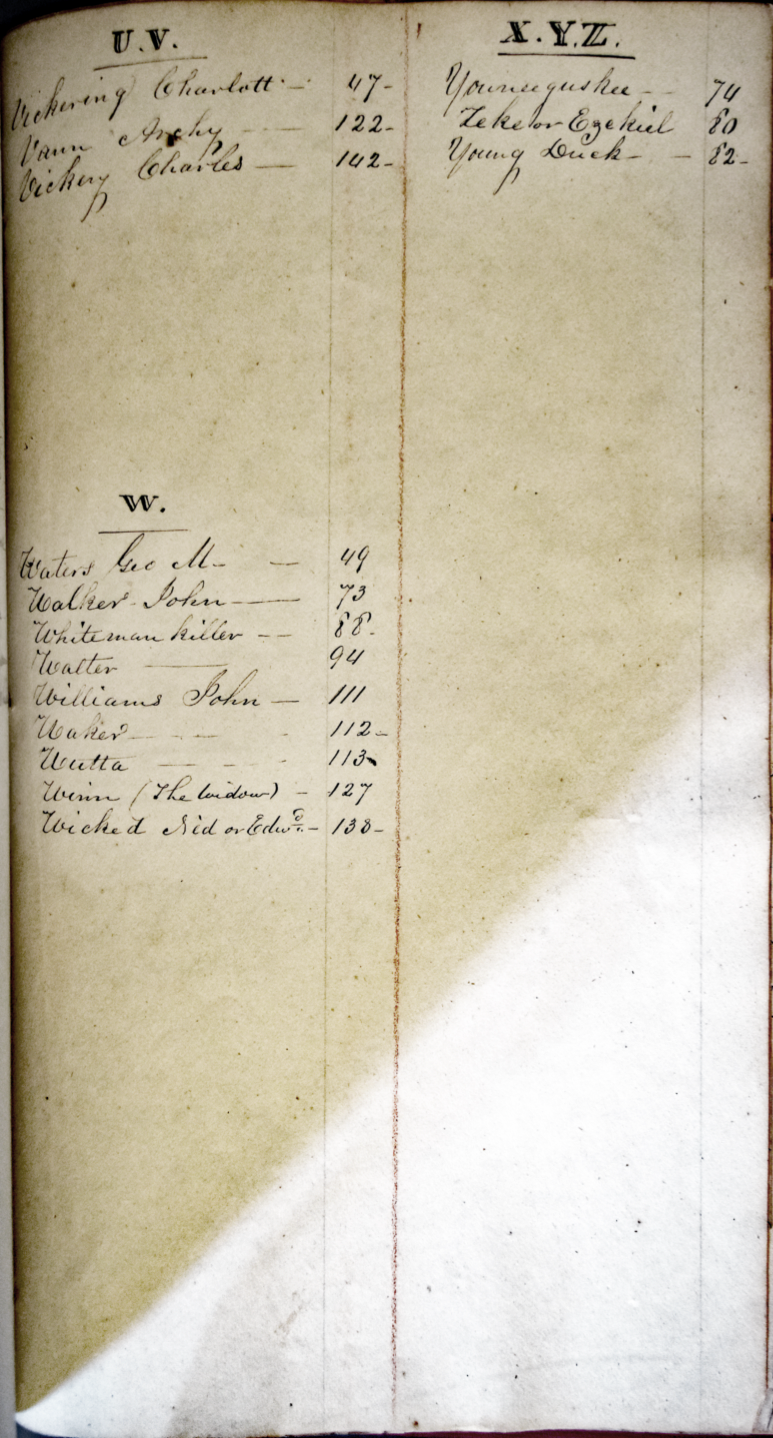 U.V.
Vickering Charlott - 47-
Vann Archy - 122-
Vickery Charles - 142-
W.
Waters Geo M - - 49
Walker John - 73
Whiteman killer - - 88-
Walter - 94
Williams John - 111
Waker - - - 112-
Wutta - - - 113
Winn (The widow) - 127
Wicked Nid or Edwd. - 138-
X.Y.Z.
Younseguskee - - 74
Zeke or Ezekiel 80
Young Duck - - 82-